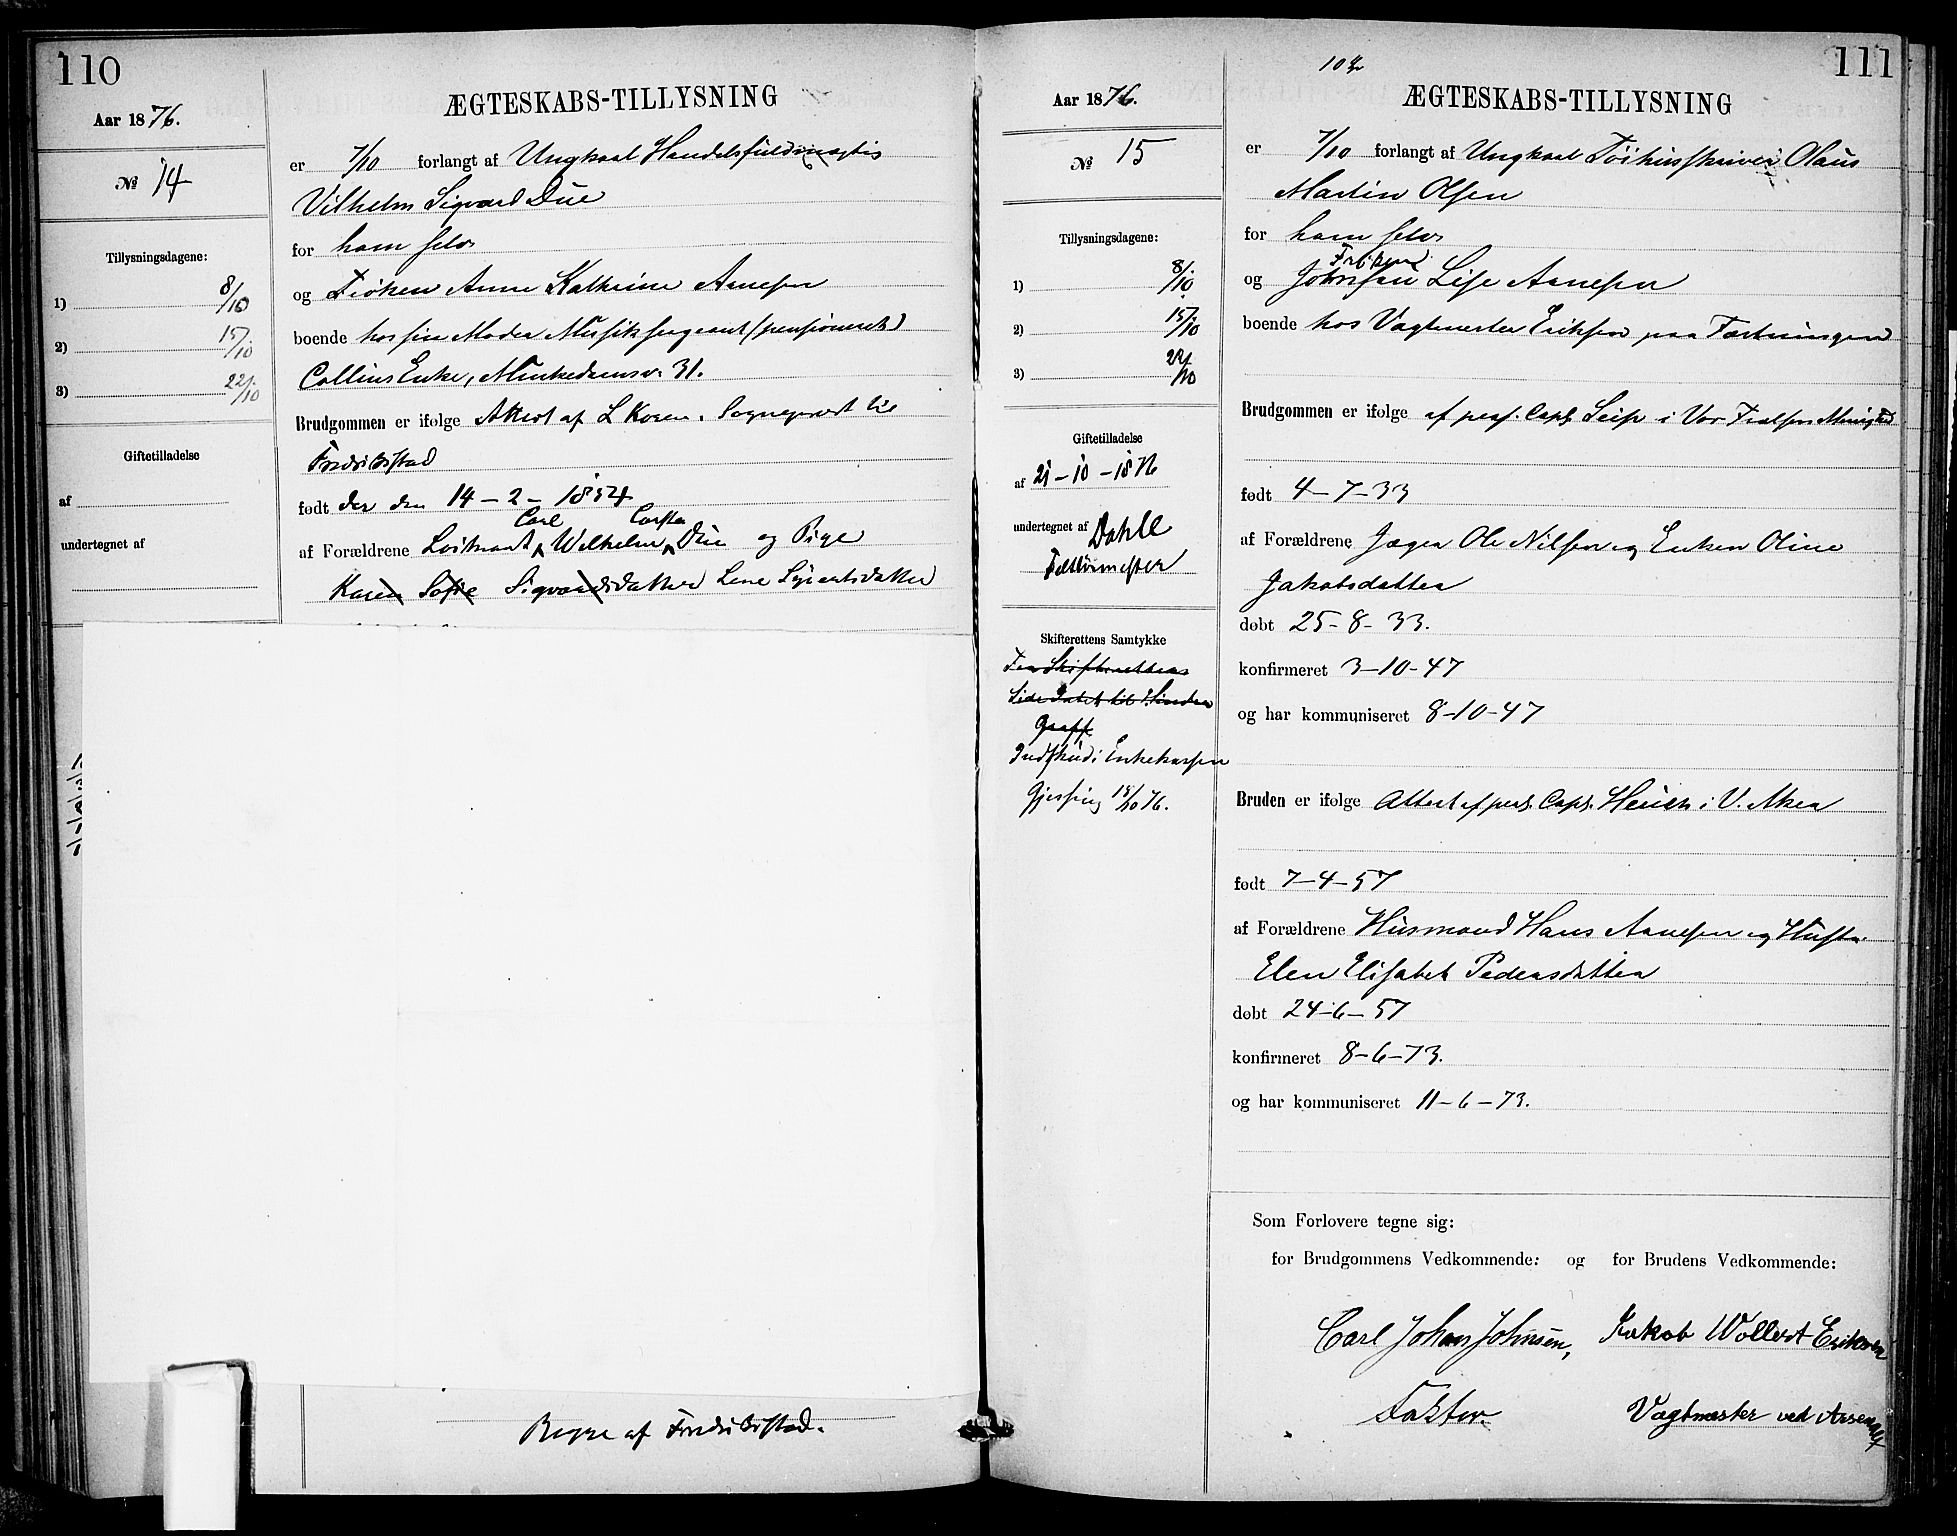 110
Aar 1876.
№ 14
Tillysningsdagene:
1) 8/10
2) 15/10
3) 22/10
Giftetilladelse
af
undertegnet af
ÆGTESKABS-TILLYSNING
er 7/10 forlangt af Ungkarl Handelsfuldmægtig
Vilhelm Sigvard Due
for ham selv
og Frøken Anne Kathrine Aanesen
boende hos sin Moder Musiksergeant (pensioneret)
Collins Enke, Munkedamsv. 31.
Brudgommen er ifølge Attest af L Koren. Sogneprest til
Fredrikstad
født der den 14-2-1854
Carl Carsten
af Forældrene Løitnant Wilhelm Due og Pige
Karen Sofie Sigvardsdatter Lene Sivertsdatter
af Fredrikstad.
111
Aar 1876.
№ 15
Tillysningsdagene:
1) 8/10
2) 15/10
3) 22/10
Giftetilladelse
af 21-10-1876
undertegnet af Dahll
Felttøimester
Skifterettens Samtykke
Fra Skifterettens
Side Intet til Hinder
Graff
Indskud i Enkekassen
Gjessing 18/10 76.
ÆGTESKABS-TILLYSNING
er 7/10 forlangt af Ungkarl Tøihusskriver Olaus
Martin Olsen
for ham selv
Frøken
og Johnsen Lise Aanesen
boende hos Vagtmester Eriksen paa Fæstningen
Brudgommen er ifølge af pers. Capl. Seip i Vor Frelsers Menighed
født 4-7-33
af Forældrene Jæger Ole Nilsen og Enken Oline
Jakobsdatter
døbt 25-8-33.
konfirmeret 3-10-47
og har kommuniseret 8-10-47
Bruden er ifølge Attest af pers. Capl. Heuch i V. Aker
født 7-4-57
af Forældrene Husmand Hans Aanesen og Hustru
Elen Elisabet Pedersdatter
døbt 24-6-57
konfirmeret 8-6-73.
og har kommuniseret 11-6-73.
Som Forlovere tegne sig:
for Brudgommens Vedkommende: og for Brudens Vedkommende:
Carl Johan Johnsen, Jakob Wollert Eriksen
Faktor Vagtmester ved Arsenalet